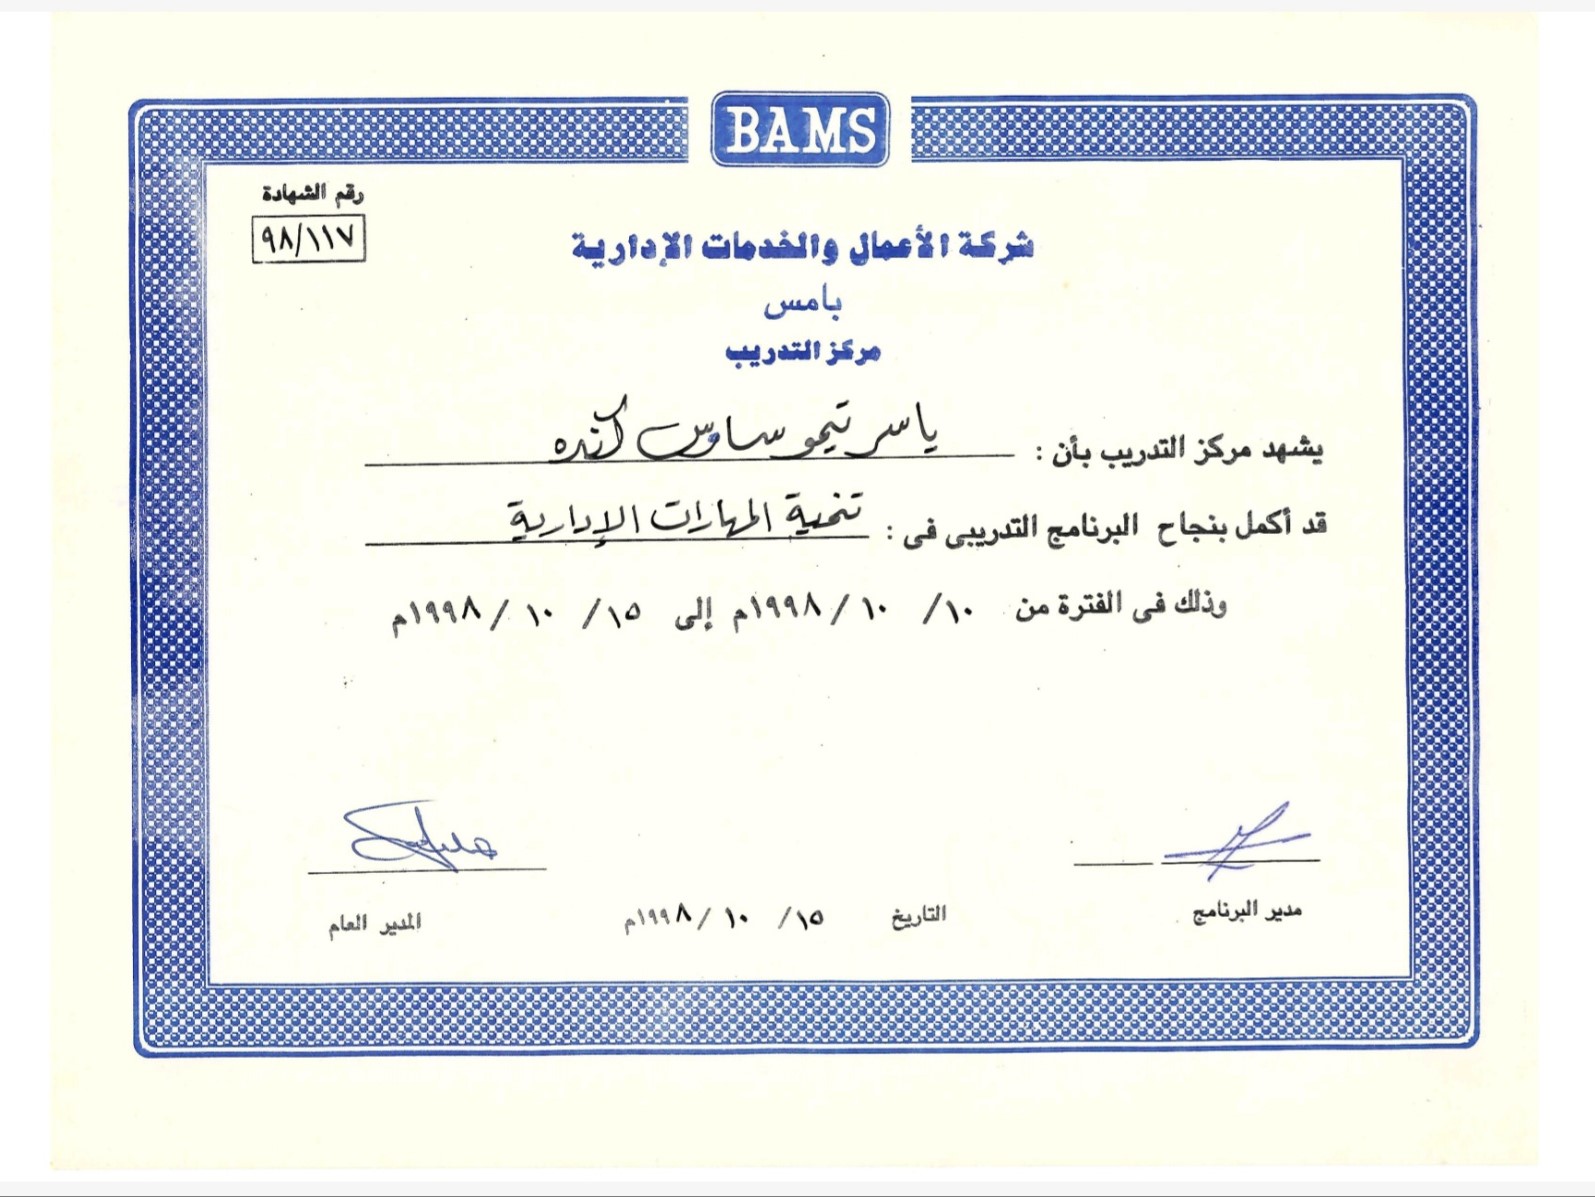 BAMS
رقم الشهادة
٩٨/١١٧
شركة الأعمال والخدمات الإدارية
بامس
مركز التدريب
يشهد مركز التدريب بأن : ياسر تيمو ساوس كنده
قد أكمل بنجاح البرنامج التدريبى فى : تنمية المهارات الإدارية
وذلك فى الفترة من ١٠/ ١٠ /١٩٩٨م إلى ١٥/ ١٠ /١٩٩٨م
مدير البرنامج
التاريخ ١٥/ ١٠ /١٩٩٨م
المدير العام